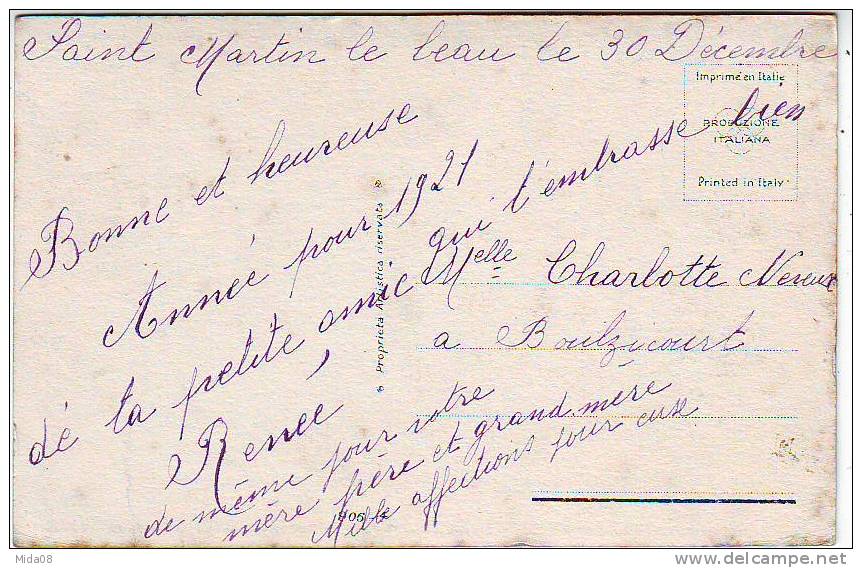 Saint Martin le beau le 30 Décembre
Imprimé en Italie
PRODUZIONE
ITALIANA
Printed in Italy
Bonne et heureuse
Année pour 1921
dé ta petite amie qui t'embrasse bien
Renée,
Proprieta Artistica riservata
Melle Charlotte
a Boulzicourt
de même pour votre
mère père et grand mère
Mille affections pour eux
Mida08
www.delcampe.net